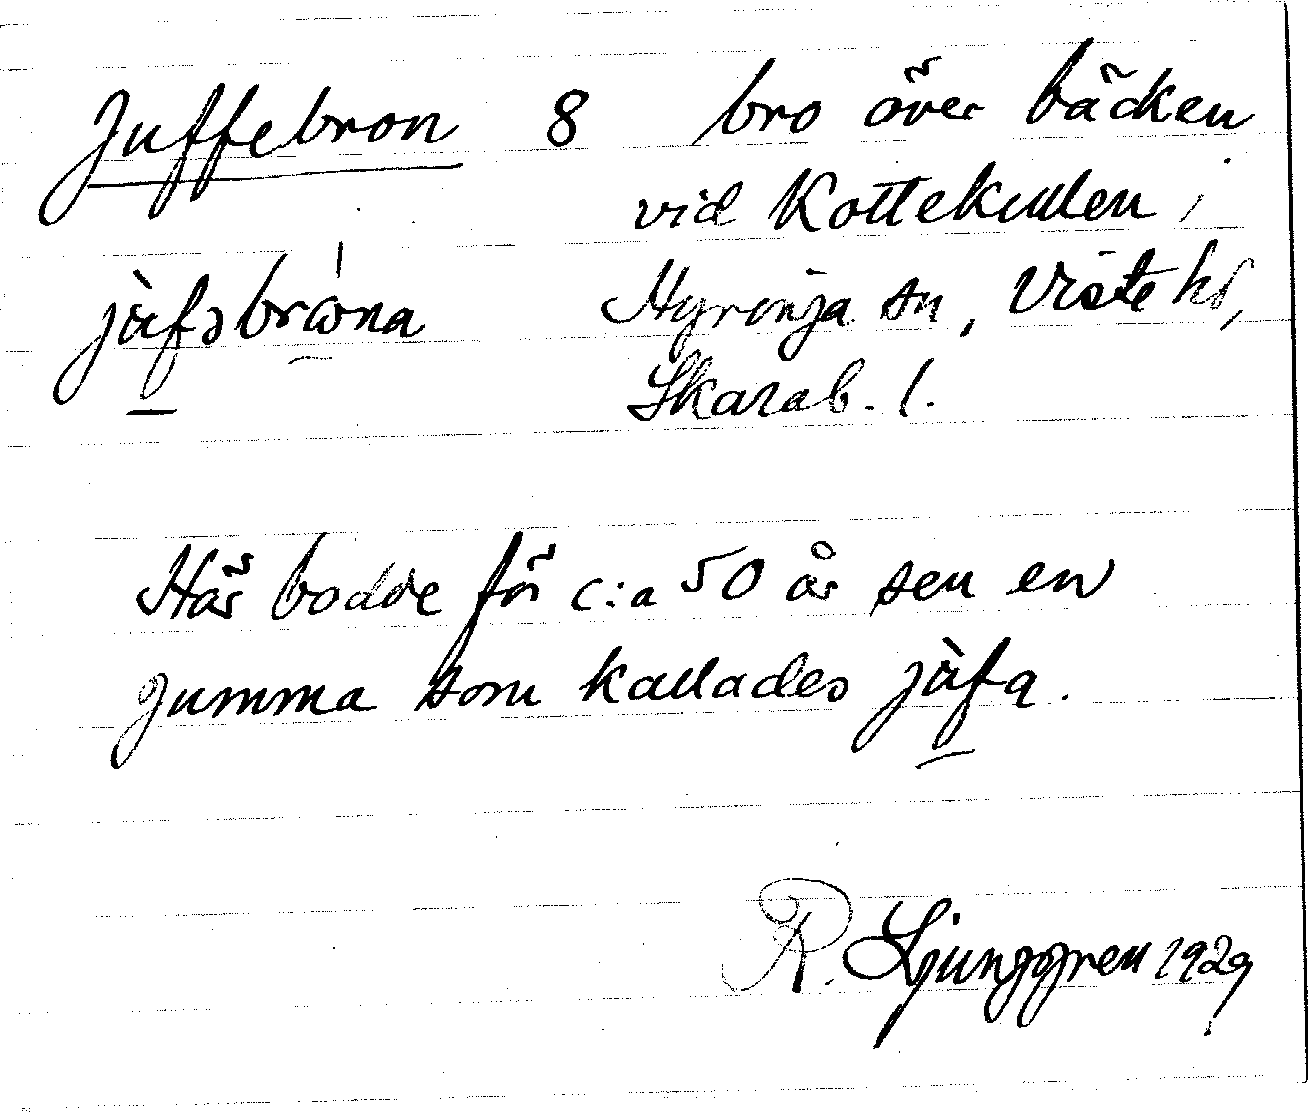 Juffebron 8 bro över bäcken
vid Kottekullen i
jùfəbrǿna Hyringa sn, Viste hd,
Skarab. l.
Här bodde för c:a 50 år sen en
gumma som kallades jùfa.
R. Ljunggren 1929